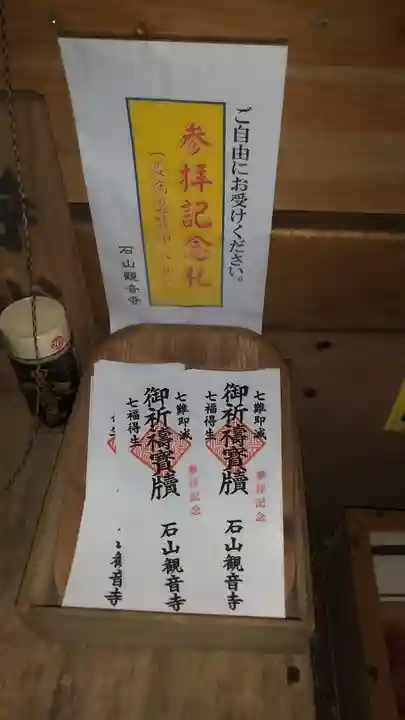 ご自由にお受けください。
参拝記念札
石山観音寺
七難即滅
七福得生
御祈祷寶牘
参拝記念
石山観音寺
七難即滅
七福得生
御祈祷寶牘
参拝記念
石山観音寺
観音寺